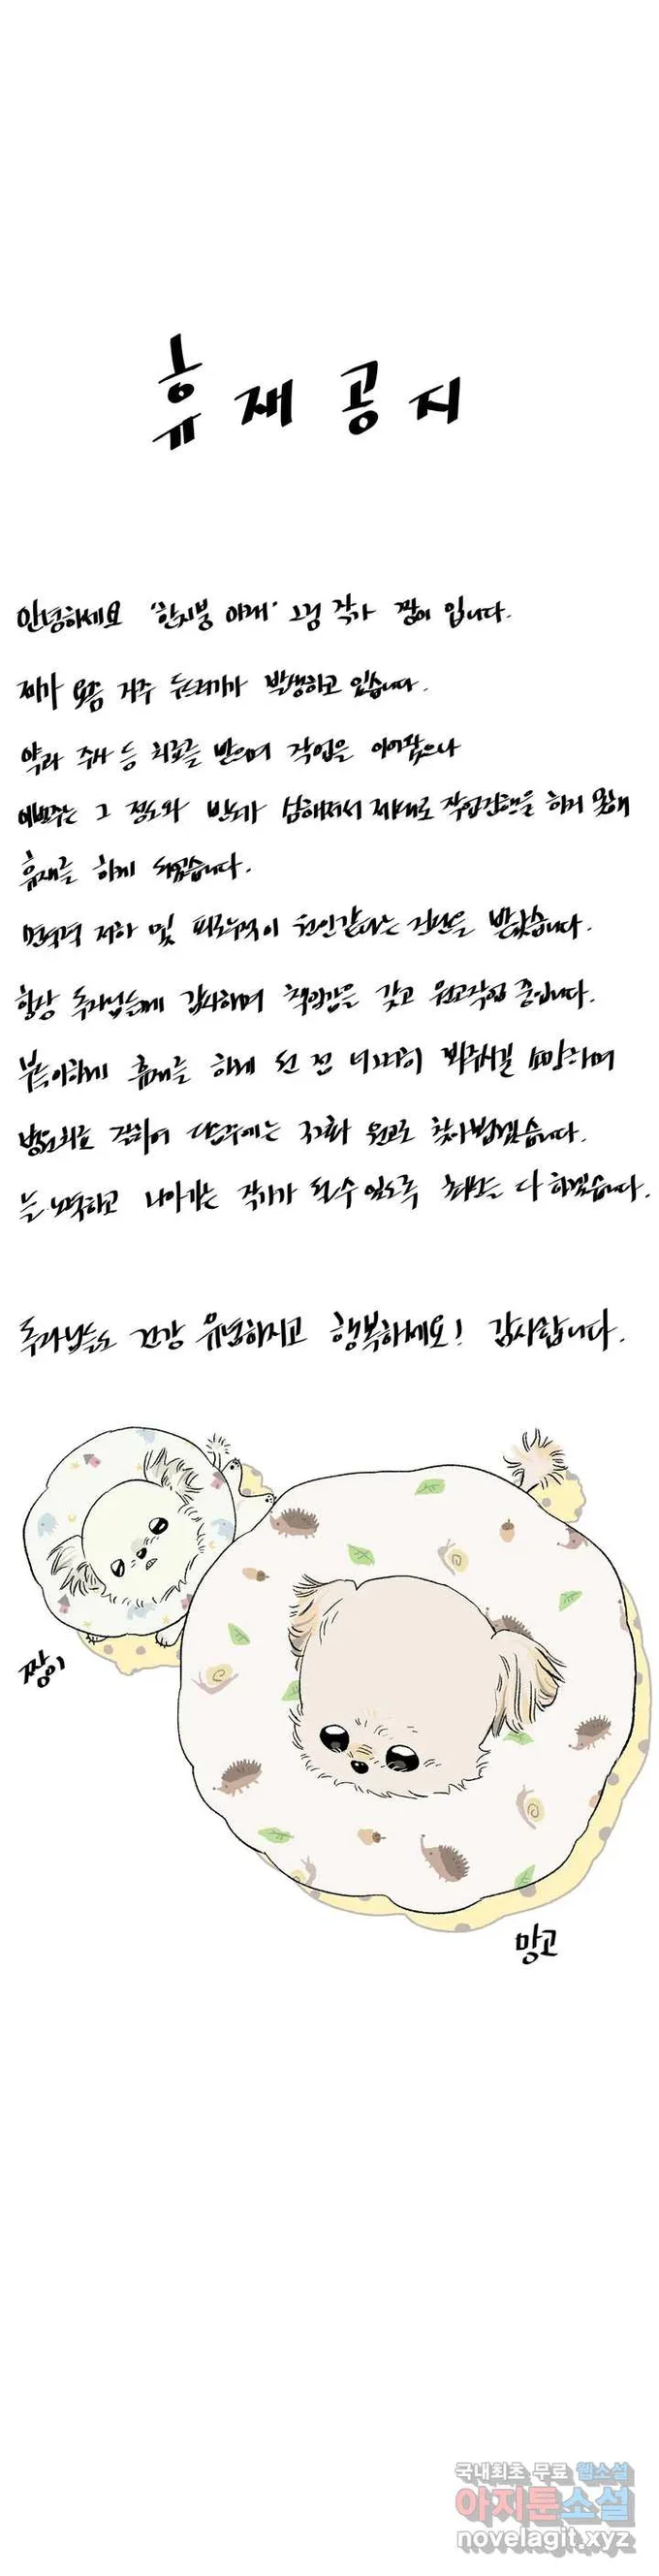 휴재공지
안녕하세요 '한지붕 아래' 그림 작가 짱이 입니다.
제가 요즘 자주 두드러기가 발생하고 있습니다.
약과 주사 등 치료를 받으며 작업을 이어왔으나
이번주는 그 정도와 빈도가 심해져서 제대로 작업진행을 하지 못해
휴재를 하게 되었습니다.
면역력 저하 및 피로누적이 원인같다는 진단을 받았습니다.
항상 독자님들께 감사하며 책임감을 갖고 원고작업 중입니다.
부득이하게 휴재를 하게 된 점 너그러이 봐주시길 소망하며
빨리 회복하여 다음주에는 회화 원고로 찾아뵙겠습니다.
늘 노력하고 나아가는 작가가 될 수 있도록 최선을 다 하겠습니다.
독자님들도 건강 유념하시고 행복하세요! 감사합니다.
짱이
망고
국내최초 무료 웹소설
아지툰소설
novelagit.xyz